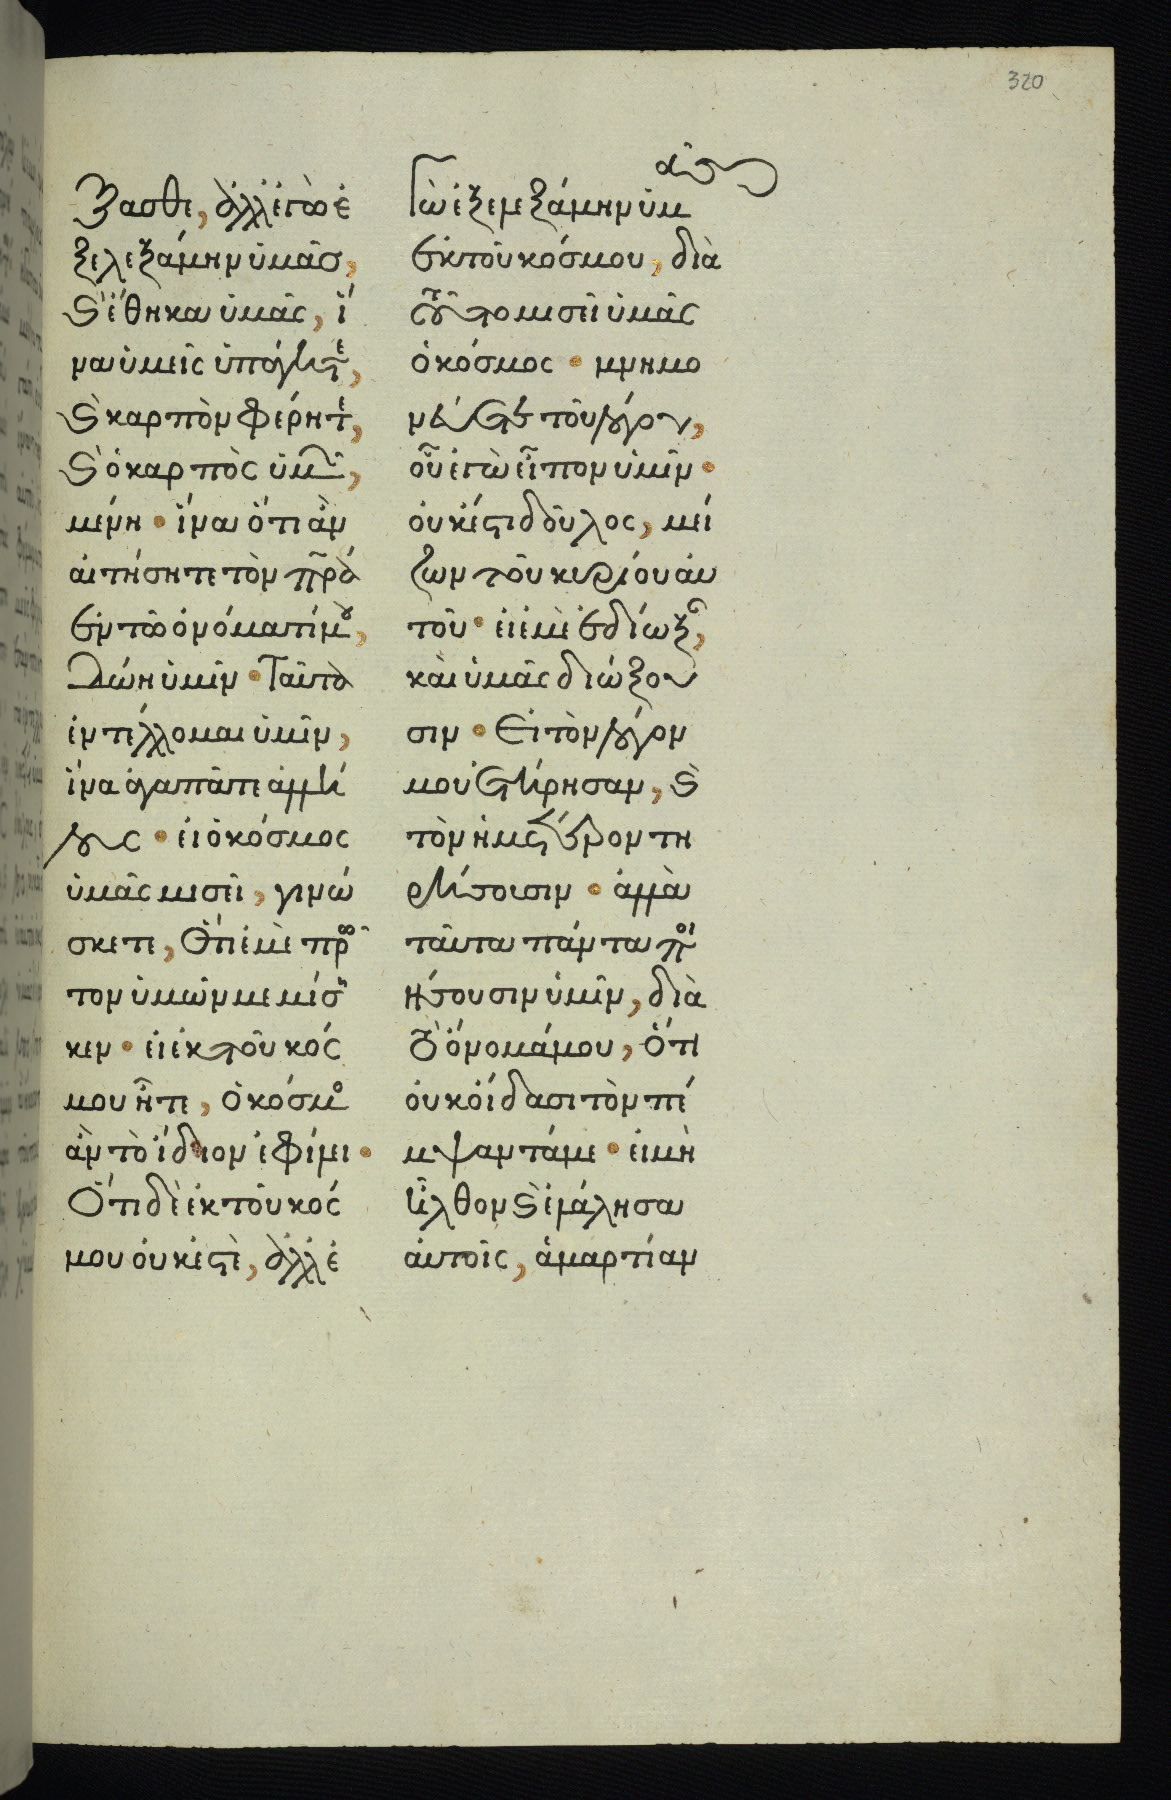 320
ξασθε, ἀλλ' ἐγὼ ἐ
ξελεξάμην ὑμᾶσ,
κ(αὶ) ἔθηκα ὑμᾶς, ἵ
να ὑμεῖς ὑπάγητε,
κ(αὶ) καρπὸν φέρητε,
κ(αὶ) ὁ καρπὸς ὑμῶν,
μένη · ἵνα ὅτι ἂν
αἰτήσητε τὸν πρ̅α
ἐν τῶ ὀνόματί μου,
δώη ὑμῖν · Ταῦτα
ἐντέλλομαι ὑμῖν,
ἵνα ἀγαπᾶτε ἀλλή
λους · εἰ ὁ κόσμος
ὑμᾶς μισεῖ, γινώ
σκετε, ὅτι ἐμὲ πρῶ
τον ὑμῶν μεμίση
κεν · εἰ ἐκ τοῦ κόσ
μου ἦτε, ὁ κόσμος
ἂν τὸ ἴδιον ἐφίλει ·
Ὅτι δὲ ἐκ τοῦ κόσ
μου οὐκ ἐστὲ, ἀλλ' ἐ
γὼ ἐξελεξάμην ὑμ
ᾶς
ἐκ τοῦ κόσμου, διὰ
τοῦτο μισεῖ ὑμᾶς
ὁ κόσμος · μνημο
νεύετε τοῦ λόγου,
οὗ ἐγὼ εἶπον ὑμῖν ·
οὐκ ἔστι δοῦλος, μεί
ζων τοῦ κυρίου αὐ
τοῦ · εἰ ἐμὲ ἐδίωξαν,
καὶ ὑμᾶς διώξου
σιν · Εἰ τὸν λόγον
μου ἐτήρησαν, κ(αὶ)
τὸν ἡμέτερον τη
ρήσουσιν · ἀλλὰ
ταῦτα πάντα ποι
ήσουσιν ὑμῖν, διὰ
τὸ ὄνομά μου, ὅτι
οὐκ οἴδασι τὸν πέ
μψαντά με · εἰ μὴ
ἦλθον κ(αὶ) ἐλάλησα
αὐτοῖς, ἁμαρτίαν